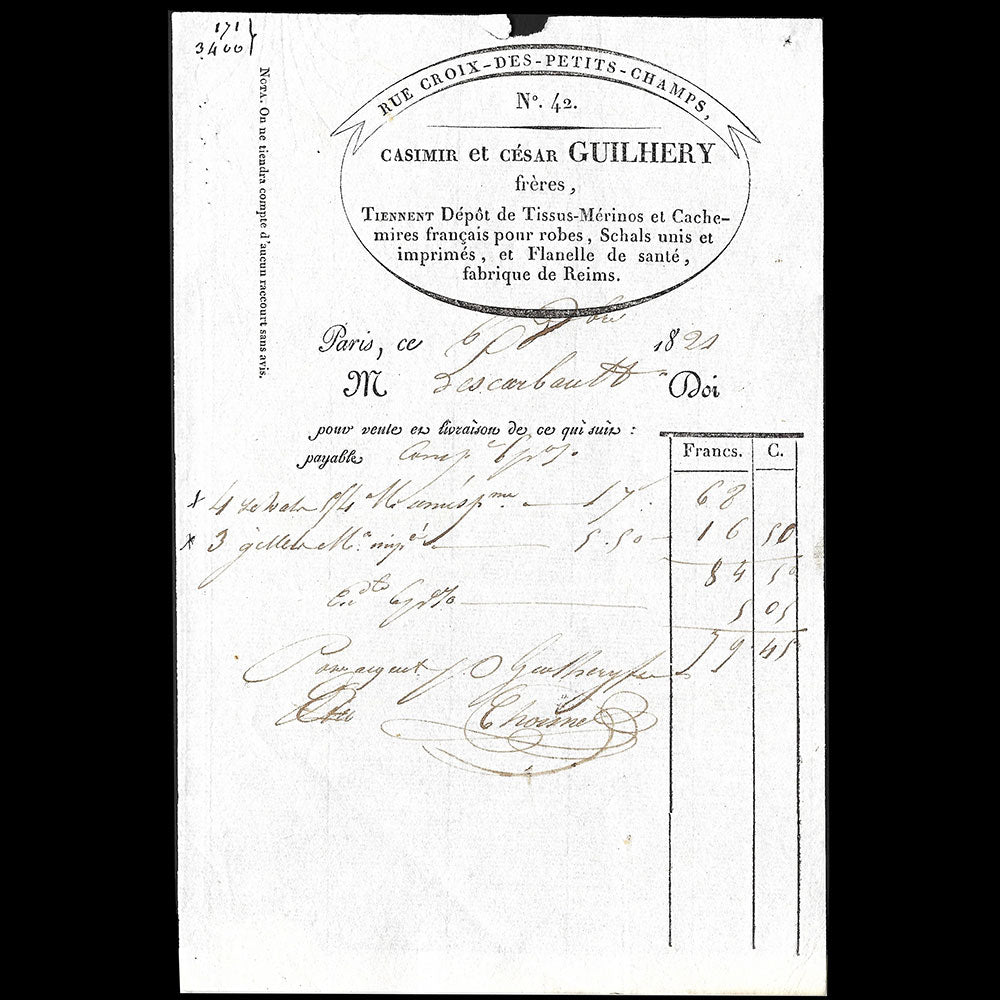 171
3400
NOTA. On ne tiendra compte d'aucun raccourt sans avis.
RUE CROIX-DES-PETITS-CHAMPS,
N°. 42.
CASIMIR et CÉSAR GUILHERY
frères,
TIENNENT Dépôt de Tissus-Mérinos et Cache-
mires français pour robes, Schals unis et
imprimés, et Flanelle de santé,
fabrique de Reims.
Paris, ce 1821
M Descarbault Doi
pour vente et livraison de ce qui suit :
payable
Francs. C.
x 4 5/4 17. 68
x 3 gillets 5.50 16 50
84 50
5 05
79 45
Pour acquit